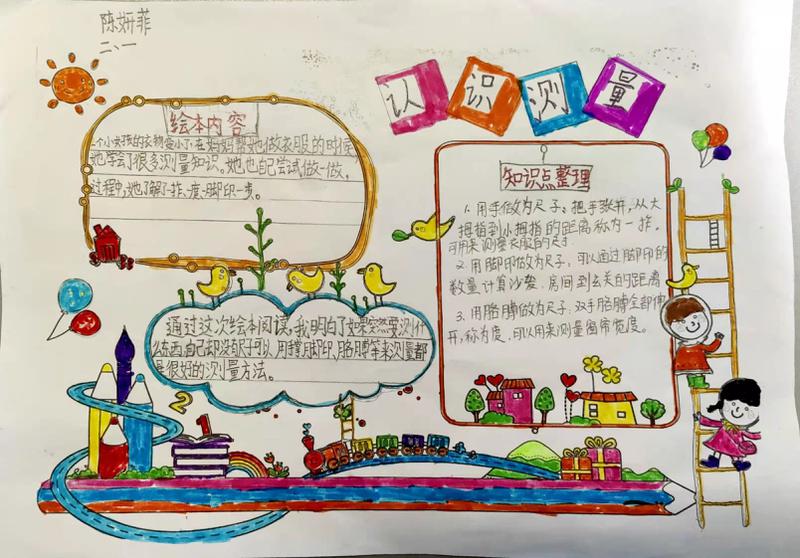 陈妍菲
二、一
认识测量
绘本内容
一个小女孩的衣物变小了,在妈妈帮她做衣服的时候,
她学会了很多测量知识。她也自己尝试做一做,
过程中,她了解了一拃、一庹、脚印一步。
知识点整理
1.用手做为尺子:把手张开,从大
拇指到小拇指的距离称为一拃。
可用来测量衣服的尺寸。
2.用脚印做为尺子:可以通过脚印的
数量计算沙发、房间到玄关的距离
3.用胳膊做为尺子:双手胳膊全部伸
开,称为庹,可以用来测量窗帘宽度。
通过这次绘本阅读,我明白了如果突然要测什
么东西,自己却没有尺子可以,用手掌,脚印,胳膊等来测量都
是很好的测量方法。
2
1